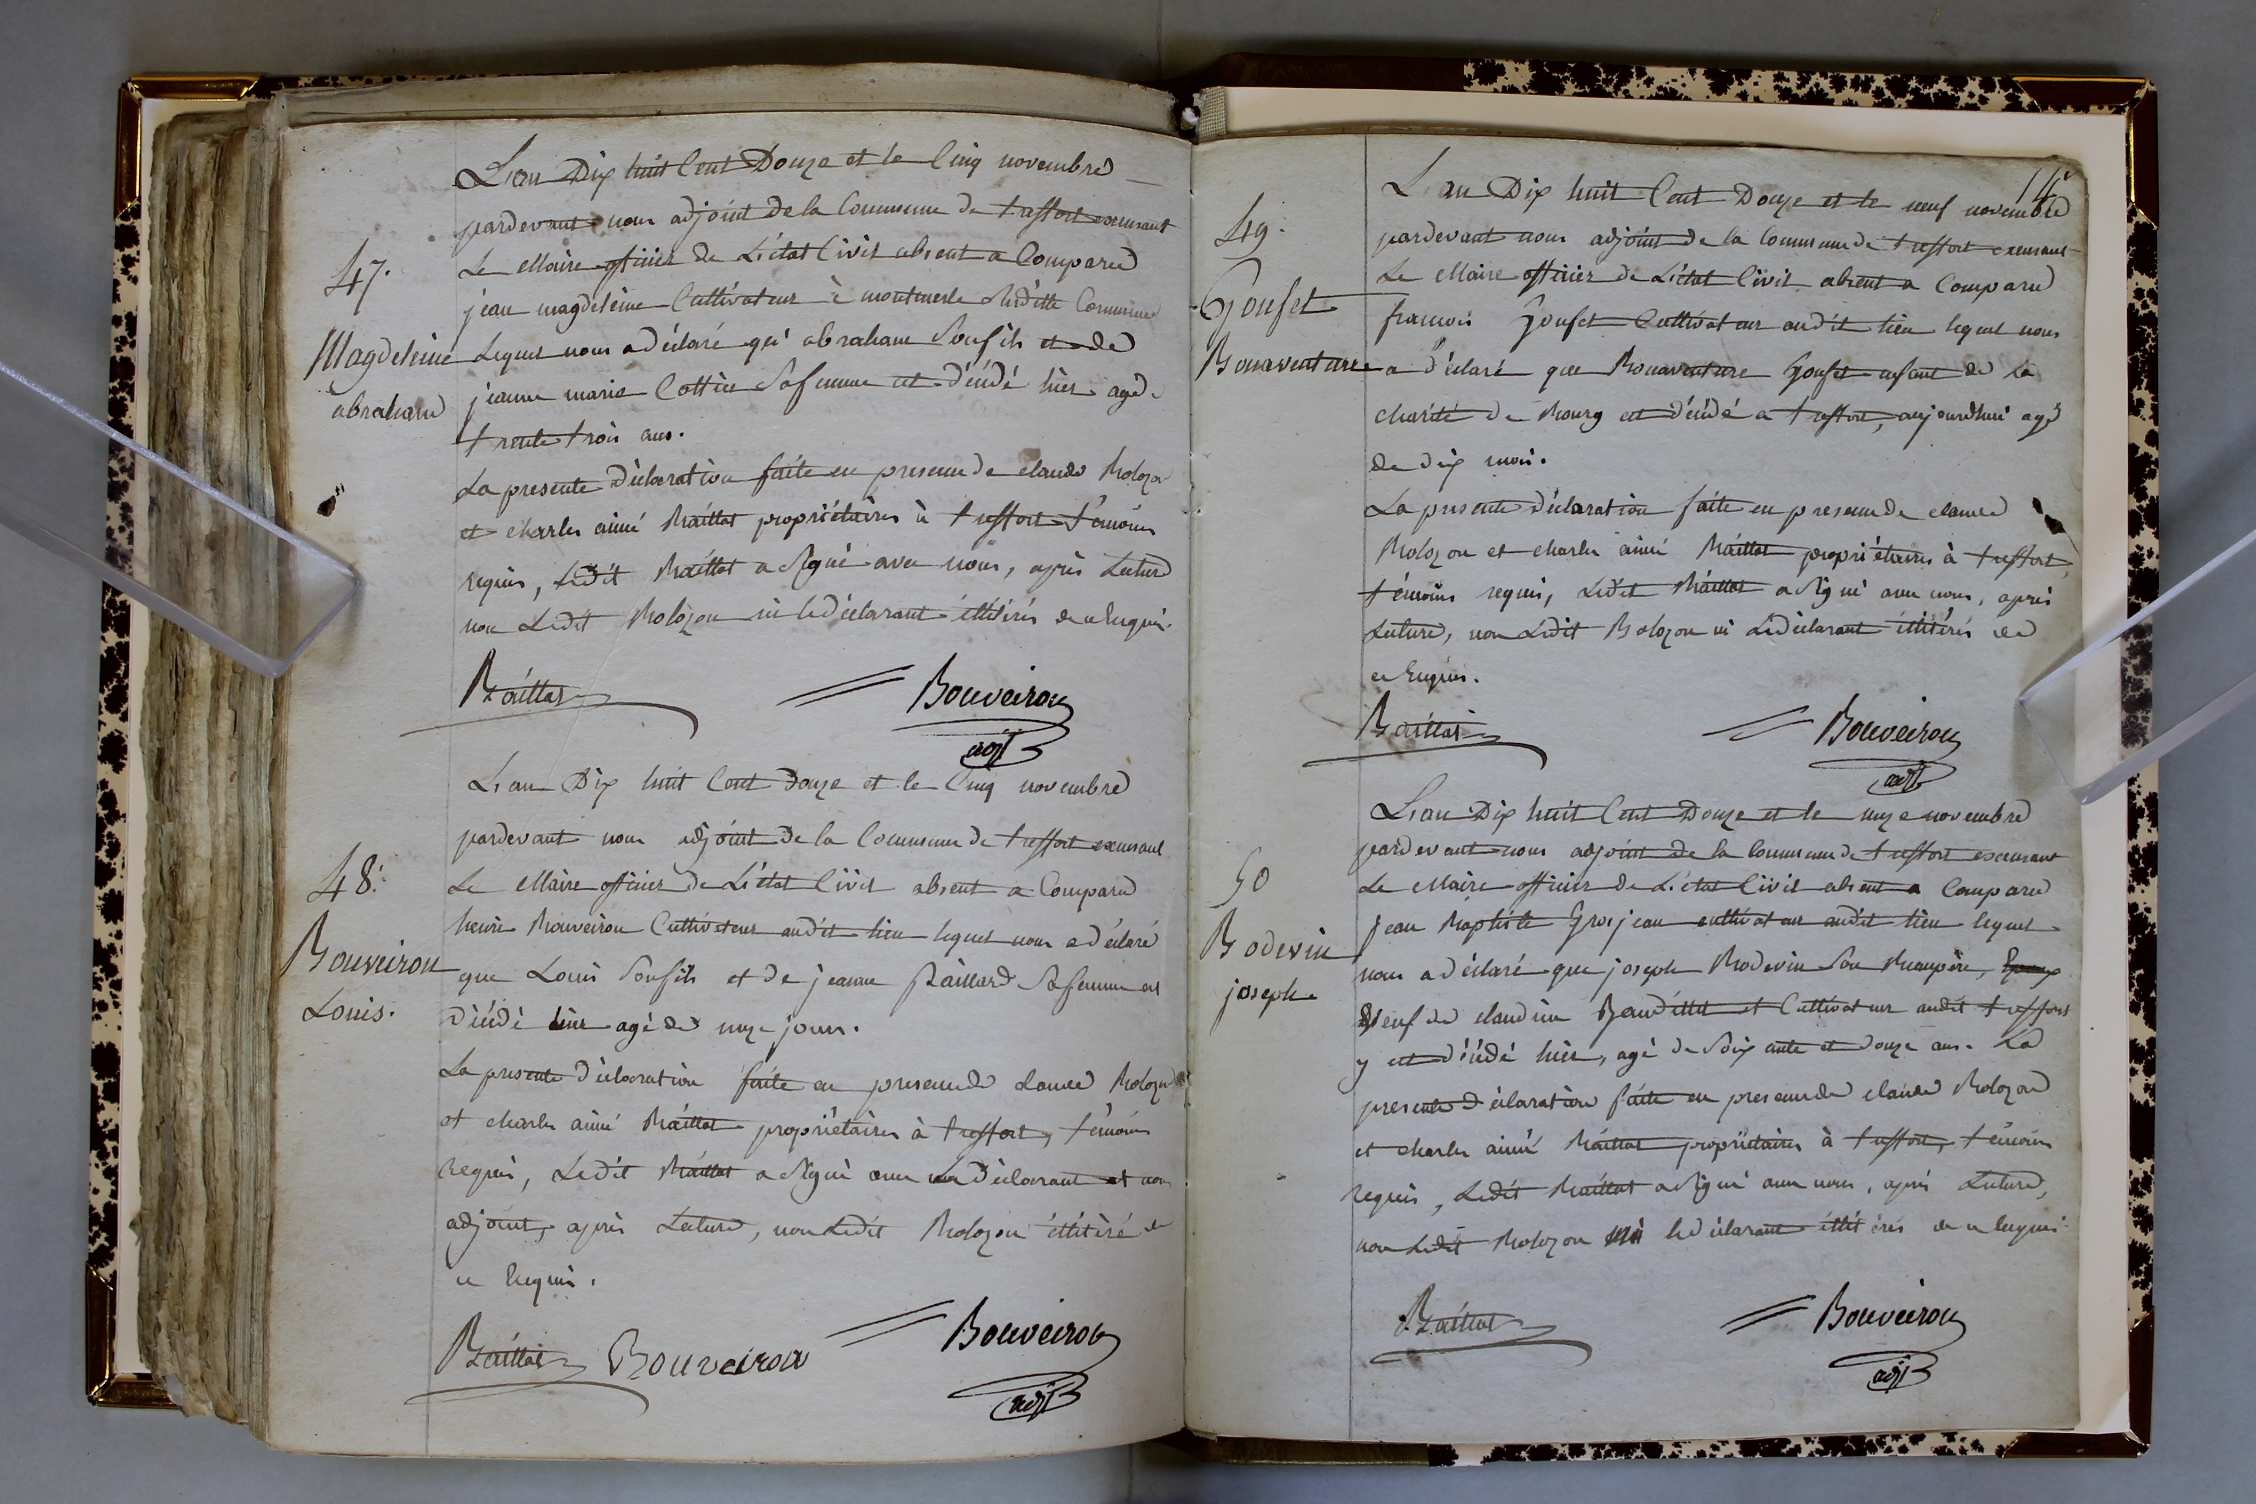 L'an Dix huit Cent Douze et le Cinq novembre
pardevant nous adjoint de la Commune de treffort excusant
Le Maire officier de L'état Civil absent a Comparu
47.
jean magdeleine Cultivateur à montmerle Susditte Commune
Magdeleine
Lequel nous a déclaré qu'abraham Son fils et de
abraham
jeanne marie Cottin Sa femme est décédé hier agé
trente trois ans.
La presente déclaration faite en presence de claude Bolozon
et charles aimé Baillat propriétaires à treffort témoins
requis, Ledit Baillat a Signé avec nous, après Lecture
non Ledit Bolozon ni le déclarant illitérés de ce Enquis.
Baillat
Bouveiron
adjt
L'an Dix huit Cent douze et le Cinq novembre
pardevant nous adjoint de la Commune de treffort excusant
48.
Le Maire officier de L'état Civil absent a Comparu
henri Bouveiron Cultivateur audit lieu lequel nous a déclaré
Bouveiron
que Louis Son fils et de jeanne Baillard Sa femme est
Louis.
décédé hier agé de onze jours.
La presente déclaration faite en presence de claude Bolozon
et charles aimé Baillat propriétaires à treffort, témoins
Requis, Ledit Baillat a Signé avec Le déclarant et nous
adjoint, après Lecture, non Ledit Bolozon illitéré de
ce Enquis.
Baillat Bouveiron
Bouveiron
adjt
L'an Dix huit Cent Douze et le neuf novembre
49.
pardevant nous adjoint de la Commune de treffort excusant
Le Maire officier de L'état Civil absent a Comparu
Gonfet
francois Gonfet Cultivateur audit lieu lequel nous
Bonaventure
a déclaré que Bonaventure Gonfet enfant de la
charité de Bourg est décédé a treffort, aujourdhui agé
de dix mois.
La presente déclaration faite en presence de claude
Bolozon et charles aimé Baillat propriétaires à treffort,
témoins requis, Ledit Baillat a Signé avec nous, après
Lecture, non Ledit Bolozon ni Le déclarant illitérés de
ce Enquis.
Baillat
Bouveiron
adjt
L'an Dix huit Cent Douze et le onze novembre
pardevant nous adjoint de la Commune de treffort excusant
50
Le Maire officier de L'état Civil absent a Comparu
jean Baptiste Grosjean cultivateur audit lieu lequel
Bodevin
nous a déclaré que joseph Bodevin Son Beaupère,
joseph
veuf de claudine et Cultivateur audit treffort
y est décédé hier, agé de Soixante et douze ans. La
presente déclaration faite en presence de claude Bolozon
et charles aimé Baillat propriétaires à treffort, témoins
requis, Ledit Baillat a Signé avec nous, après Lecture,
non Ledit Bolozon ni le déclarant illitérés de ce Enquis
Baillat
Bouveiron
adjt